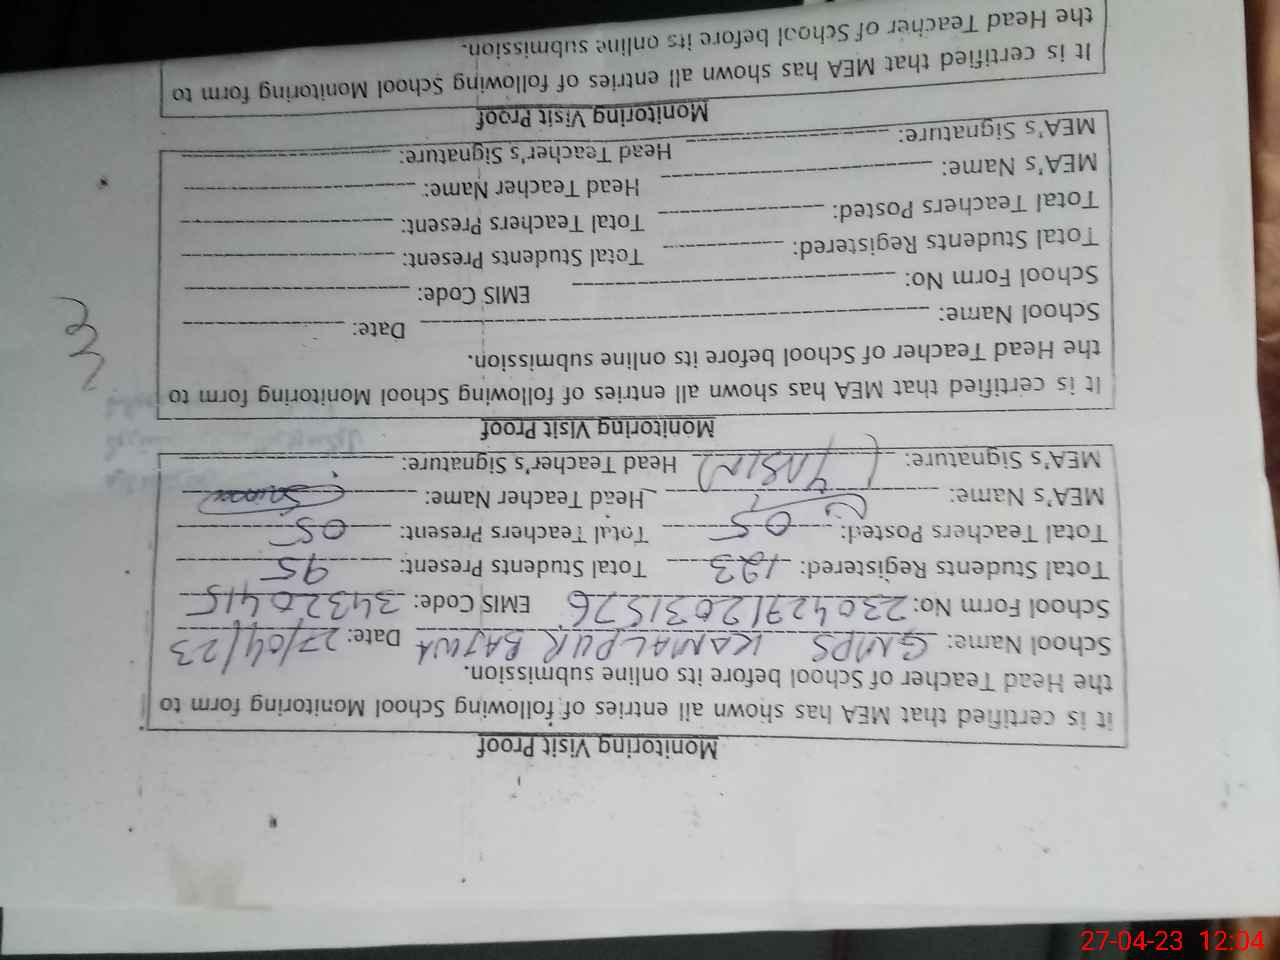 Monitoring Visit Proof
it is certified that MEA has shown all entries of following School Monitoring form to
the Head Teacher of School before its online submission.
School Name: GMPS KAMALPUR BAJWA Date: 27/04/23
School Form No: 23042712031576 EMIS Code: 34320415
Total Students Registered: 123 Total Students Present: 95
Total Teachers Posted: 05 Total Teachers Present: 05
MEA's Name: Head Teacher Name:
MEA's Signature: (YASIN) Head Teacher's Signature:
Monitoring Visit Proof
It is certified that MEA has shown all entries of following School Monitoring form to
the Head Teacher of School before its online submission.
School Name: Date:
School Form No: EMIS Code:
Total Students Registered: Total Students Present:
Total Teachers Posted: Total Teachers Present:
MEA's Name: Head Teacher Name:
MEA's Signature: Head Teacher's Signature:
Monitoring Visit Proof
It is certified that MEA has shown all entries of following School Monitoring form to
the Head Teacher of School before its online submission.
27-04-23 12:04